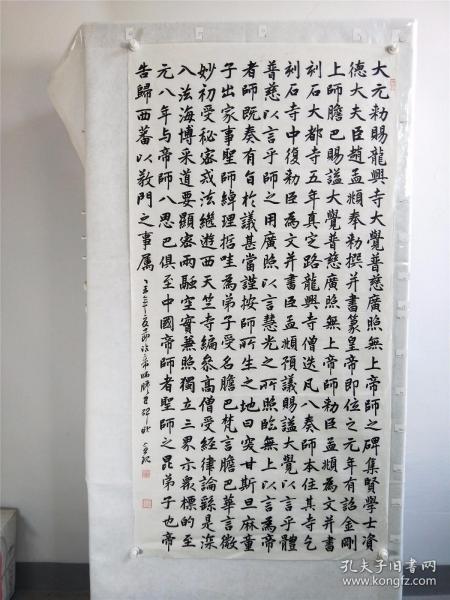 大元勅賜龍興寺大覺普慈廣照無上帝師之碑集賢學士資
德大夫臣趙孟頫奉勅撰并書篆皇帝即位之元年有詔金剛
上師膽巴賜謚大覺普慈廣照無上帝師勅臣孟頫為文并書
刻石大都寺五年真定路龍興寺僧迭凡八奏師本住其寺乞
刻石寺中復勅臣為文并書臣孟頫預議賜謚大覺以言乎體
普慈以言乎師之用廣照以言慧光之所照臨無上以言為帝
者師既奏有旨於議甚當謹按師所生之地曰突甘斯旦麻童
子出家事聖師綽理哲哇為弟子受名膽巴梵言膽巴華言微
妙初受秘密戒法繼遊西天竺寺編參高僧受經律論繇是深
入法海博采道要顯密兩融空實兼照獨立三界示衆標的至
元八年与帝師八思巴俱至中國帝師者聖師之昆弟子也帝
告歸西蕃以教門之事属
孔夫子旧书网
www.kongfz.com